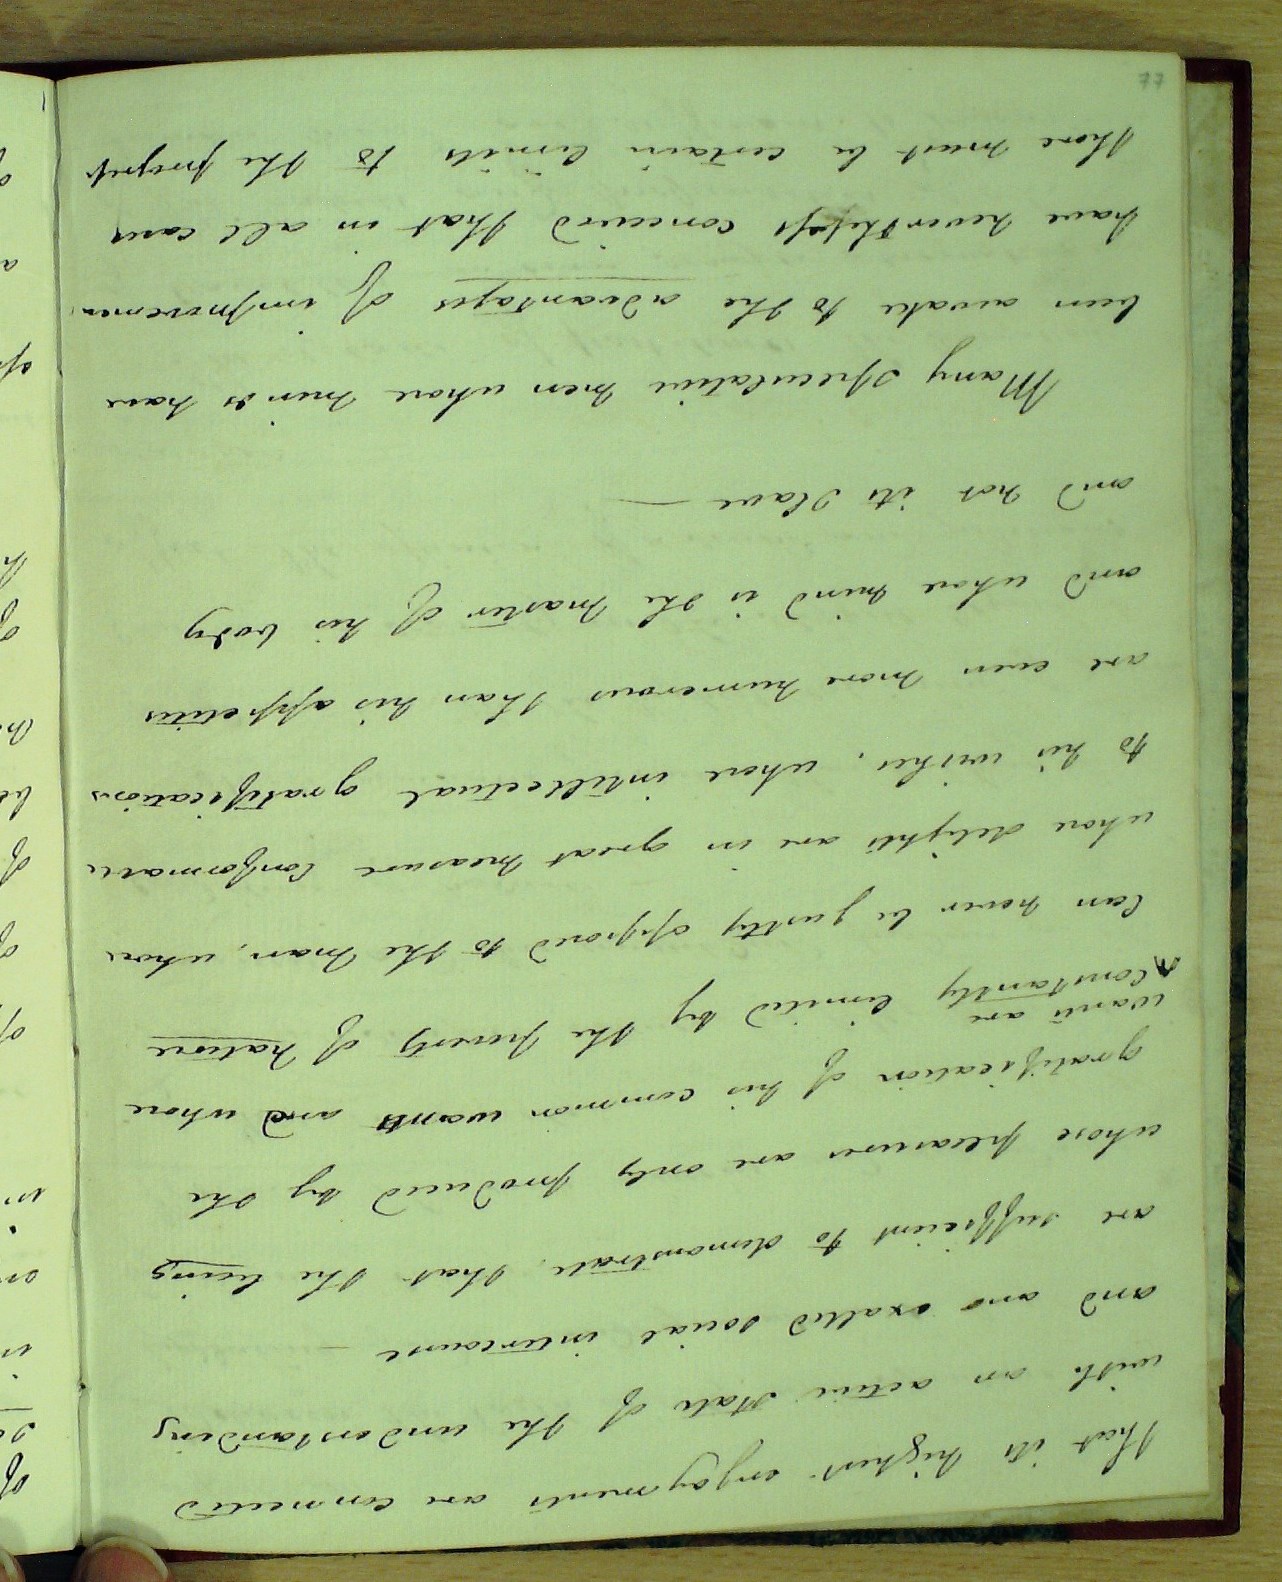 that its highest enjoyments are connected
with an active state of the understanding
and and exalted social intercourse —
are sufficient to demonstrate, that the being
whose pleasures are only produced by the
gratification of his common wants and whose
wants are
constantly limited by the poverty of nature
Can never be justly opposed to the Man, whose
whose delights are in great measure Conformable
to his wishes, whose intellectual gratifications
are even more numerous than his appetites
and whose mind is the master of his body
and not its Slave —
Many speculative men whose minds have
been awake to the advantages of improvement
have nevertheless conceived that in all cases
there must be certain limits to the progress
77